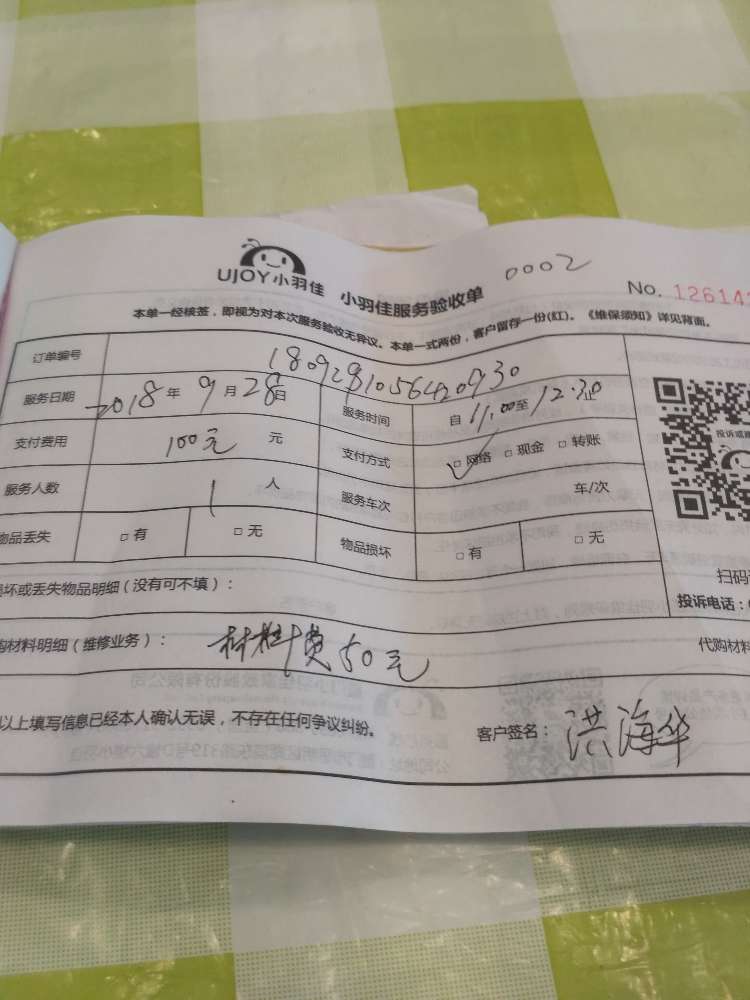 UJOY小羽佳 小羽佳服务验收单 0002
No. 12614
本单一经核签，即视为对本次服务验收无异议。本单一式两份，客户留存一份(红)。《维保须知》详见背面。
订单编号 1809281056420930
服务日期 2018年9月28日 服务时间 自11:00至12:30止
支付费用 100元 元 支付方式 ☑网络 □现金 □转账
服务人数 1人 服务车次 车/次
物品丢失 □有 □无 物品损坏 □有 □无
坏或丢失物品明细（没有可不填）：
扫码
投诉电话：
购材料明细（维修业务）： 材料费50元 代购材料
以上填写信息已经本人确认无误，不存在任何争议纠纷。 客户签名：洪海华